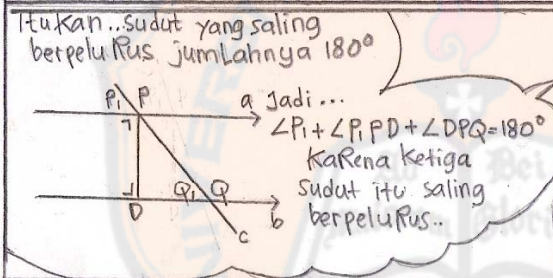 Itukan.. sudut yang saling
berpeluRus jumLahnya 180°
P₁ P
a Jadi...
∠P₁+∠P₁PD+∠DPQ=180°
KaRena Ketiga
Sudut itu saling
berpeluRus..
Q₁ Q
D
b
c